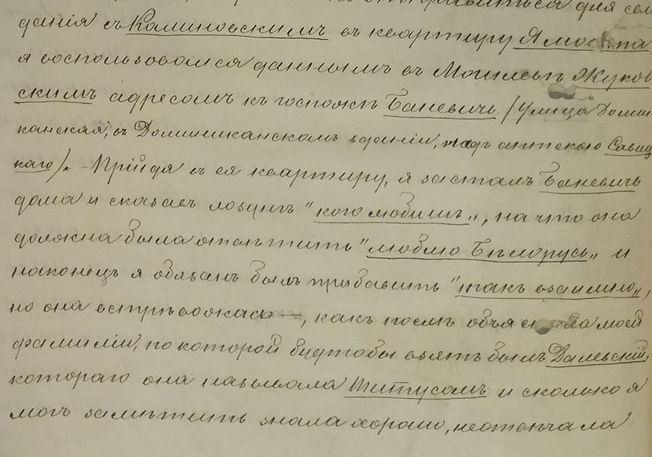 отправиться для сви
данія съ Калиновскимъ въ квартиру Ямонта
я воспользовался даннымъ въ Могилевѣ Жуков
скимъ адресомъ къ госпожѣ Баневичь /Улица Домини
канская, въ Доминиканскомъ зданіи, надъ аптекою Савиц
каго/. Прійдя въ ея квартиру, я засталъ Баневичь
дома и сказавъ лозунгъ "кого любишь", на что она
должна была отвѣтить "люблю Бѣлорусь" и
наконецъ я обязанъ былъ прибавить "такъ взаимно",
но она встревожась, какъ послѣ объяснила моей
фамиліи, по которой будтобы взятъ былъ Далевскій,
котораго она называла Титусомъ и сколько я
могъ замѣтить знала хорошо, неотвѣчала